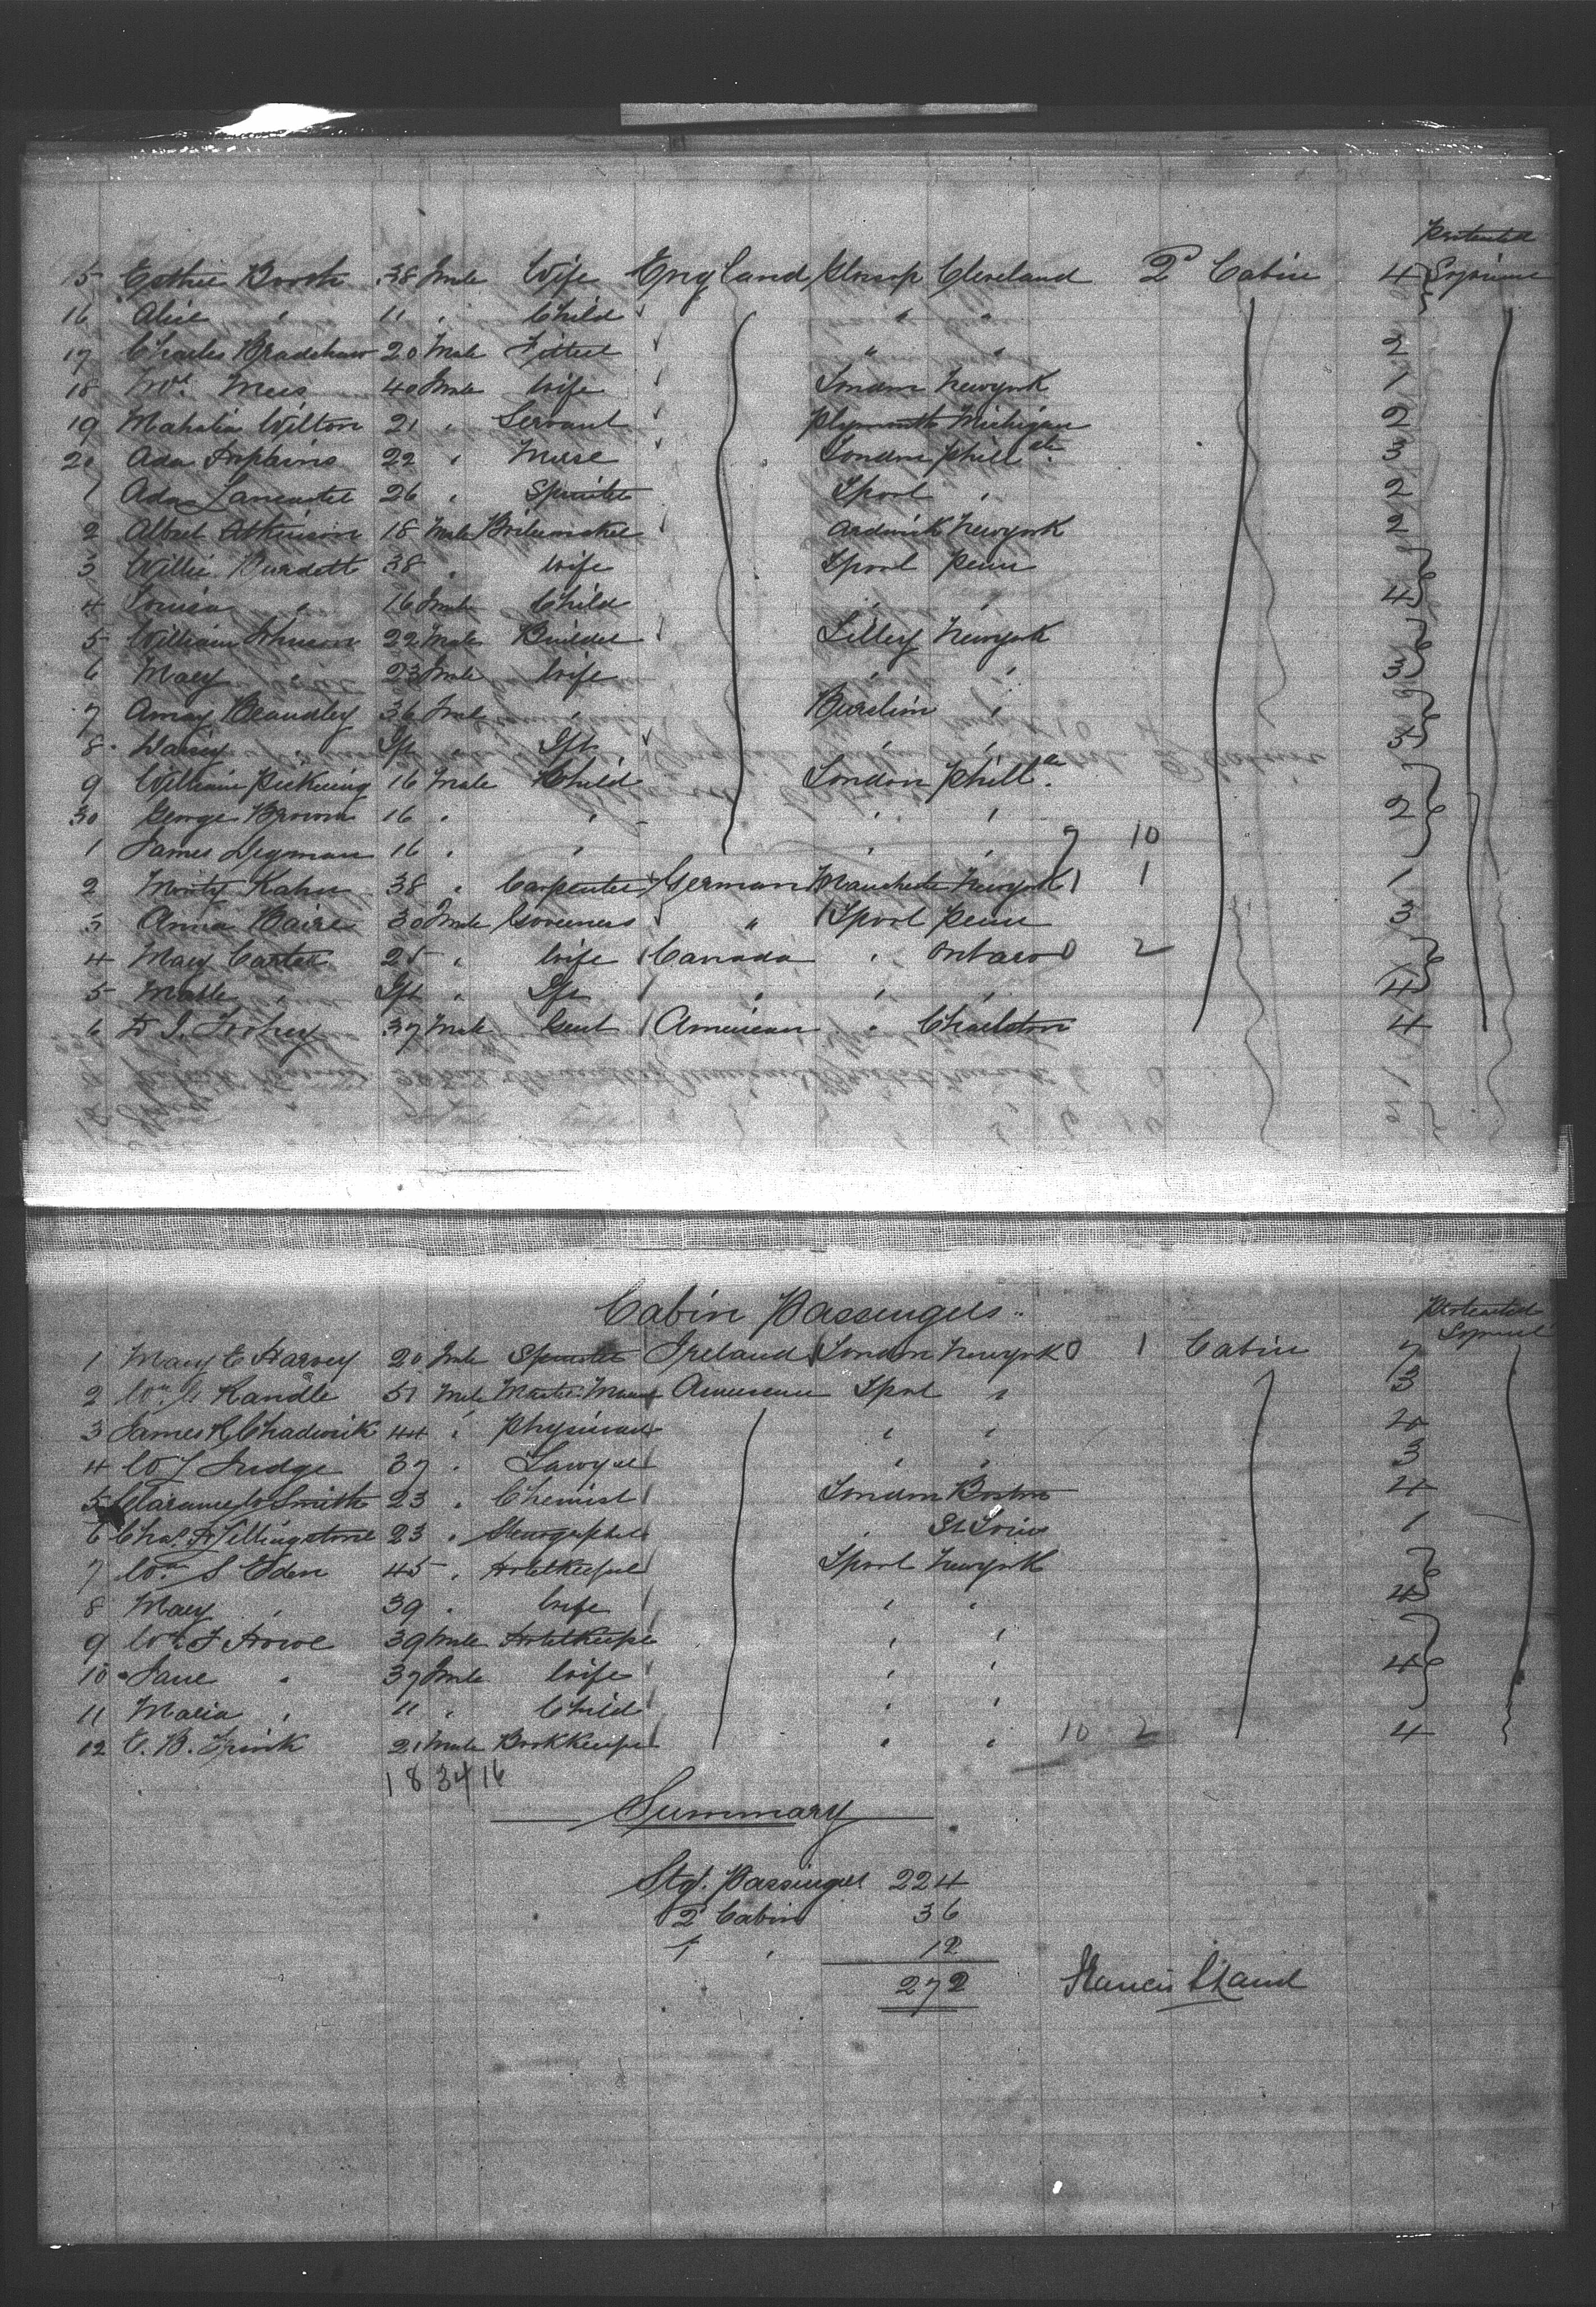 Protracted
15 Esther Booth 38 Fmle Wife England Glossop Cleveland 2 Cabin 4 Sojourn
16 Alice " 11 " Child " "
17 Charles Bradshaw 20 Male Fitter " " 2
18 Mrs. Mees 40 Fmle Wife London Newyork 1
19 Mahalia Wilton 21 " Servant Plymouth Michigan 2
20 Ada Hopkins 22 " Nurse London Phill 3
1 Ada Lancaster 26 " Spinster Lpool " 2
2 Albert Atkinson 18 Male Boilermaker Ardwick Newyork 2
3 Willie Burdett 38 " Wife Lpool Penn
4 Louisa " 16 Fmle Child " " 4
5 William Johnson 22 Male Builder Newyork
6 Mary " 23 Fmle Wife " " 3
7 Amay 36 Fmle " Burslim "
8 " Ift " Ift " " 3
9 William Pickering 16 Male Child London Phill
30 George Brown 16 " " " " 2
1 James 16 " " " " 7 10
2 Kahn 38 " Carpenter German Manchester Newyork 1 1 1
3 Anna Baire 30 Fmle Governess " Lpool Penn 3
4 Mary Carter 25 " Wife Canada " Ontaro 0 2
5 Mable " Ift " Ift " " " 4
6 37 Male Gent American " Charlston 4
Cabin Passengers
Protracted
1 Mary E Harvey 20 Fmle Spinster Ireland London Newyork 0 1 Cabin Sojourn
2 Wm. Randle 51 Male American Lpool " 3
3 James R Chadwick 44 " Physician " " 20
4 W Judge 37 " Lawyer " " 3
5 Clarance W Smith 23 " Chemist London Boston 4
6 Chas. 23 " Stenographer " St Louis 1
7 Wm S Eden 45 " Hotelkeeper Lpool Newyork
8 Mary " 39 " Wife " " 4
9 Wm F Howe 39 Male Hotelkeeper " "
10 Jane " 37 Fmle Wife " " 4
11 Maria " 11 " Child " "
12 E. B. 21 Male Bookkeeper " " 10 2 4
183416
Summary
Stg. Passenger 224
2 Cabin 36
1 " 12
272